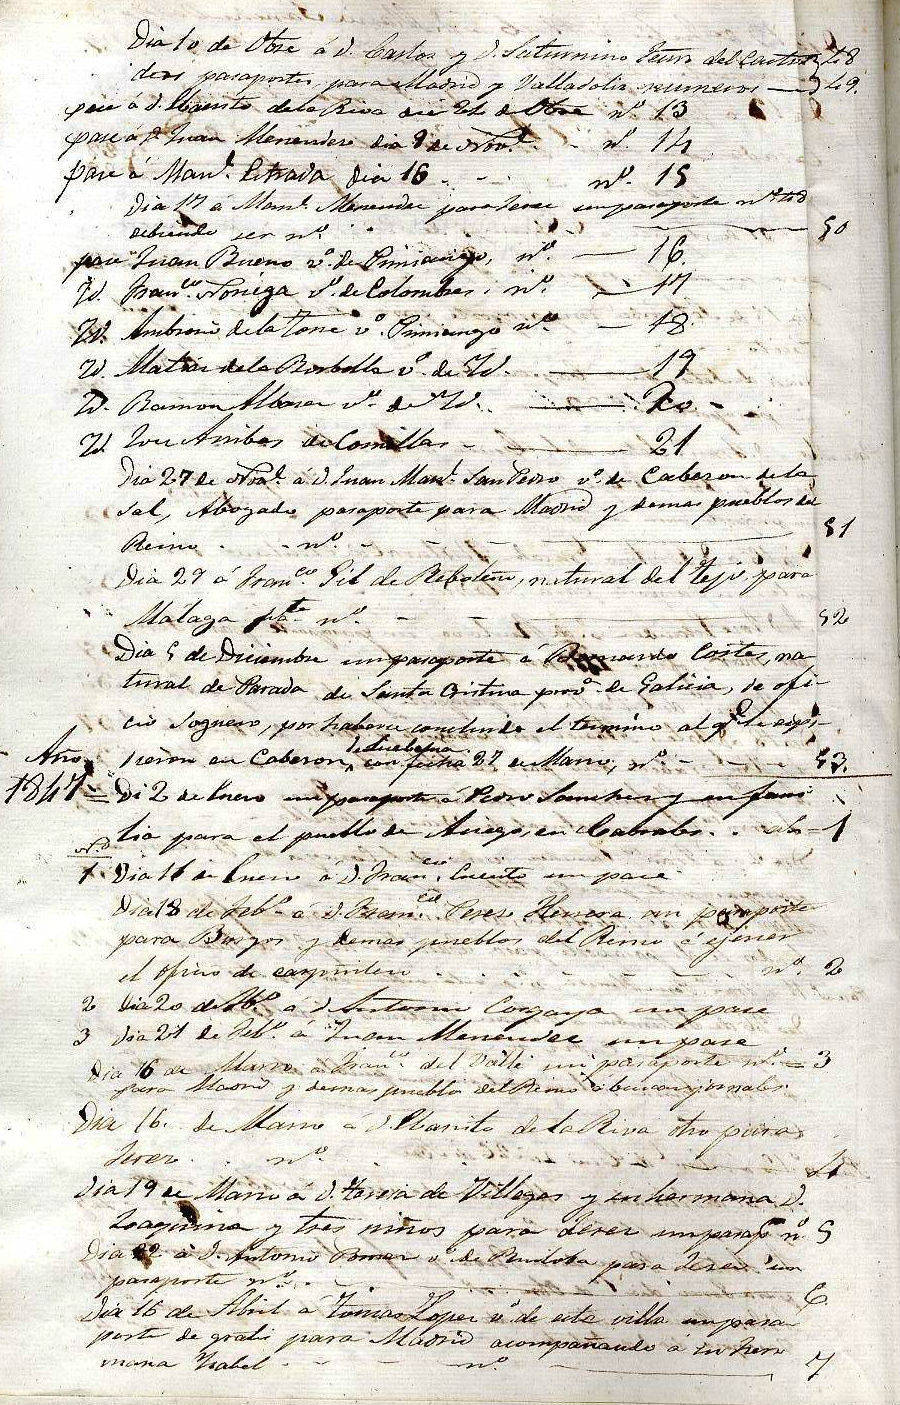 Dia 10 de Obre á D. Carlos y D. Saturnino del 48
dos pasaportes para Madrid y Valladolid numeros — y 49.
pase á D. Ebaristo de la Riva dia de Obre nº 13
pase a D. Juan Menendez dia 9 de Nov. - nº. 14
pase á Manl. Estrada dia 16 . - - nº. 15
Dia 17 á Manl. Menendez para Jerez un pasaporte nº
debiendo ser nº 50
pase Juan Bueno vº. de Pimiango, nº. — 16.
Yd. Franco. Noriega vº. de Colombres. nº. — 17
Yd. Ambrosio de la Torre vº. Pimiango nº — 18.
Yd. Matias de la Borbolla vº. de Yd. — 19
Yd. Ramon vº. de Yd. — 20 -
Yd Jose Arribas de Comillas - 21
Dia 27 de Nov. á D. Juan Manl. San Pedro vº. de Cabezon de la
Sal, Abogado pasaporte para Madrid y demas pueblos del
Reino - - nº. - 51
Dia 29 á Franco Gil de Reboleño, natural del Tejo para
Malaga nº. - - 52
Dia 5 de Diciembre un pasaporte á Bernardo Cortes, na-
tural de Parada de Santa Cristina prova. de Galicia, de ofi-
cio Soguero, por haberse concluido el termino al qe. le espi-
Año
dieron en Cabezon, con fecha 27 de Marzo, nº. - 53.
1847 = Di 2 de Enero un pasaporte á Pedro Sanchez y su fami
lia para el pueblo de en Cabrales. . - 1
Nº
1 Dia 11 de Enero á D. Franco. un pase.
Dia 18 de Feb. á D. Franco. Perez Herrera un pasaporte
para Burgos y demas pueblos del Reino á ejercer
el oficio de carpintero . . . nº. 2
2 Dia 20 de Fbº. á D Antonio un pase
3 Dia 21 de Febº. á Juan Menendez un pase
Dia 16 de Marzo á Franco. del Valle un pasaporte nº. = 3
para Madrid y demas pueblos del Reino á buscar jornales.
Dia 16. de Marzo á D. Ebaristo de la Riva otro para
Jerez . nº. . . . 4
Dia 19 de Marzo á D. Teresa de Villegas y su hermana D.
Joaquina y tres niños para Jerez un pasapte nº. 5
Dia 22 á D. Antonio vº. de para Jerez un
pasaporte nº. . - 6
Dia 15 de Abril á Tomas Lopez vº. de esta villa un pasa
porte de gratis para Madrid acompañando á su her
mana Ysabel - - - nº. 7